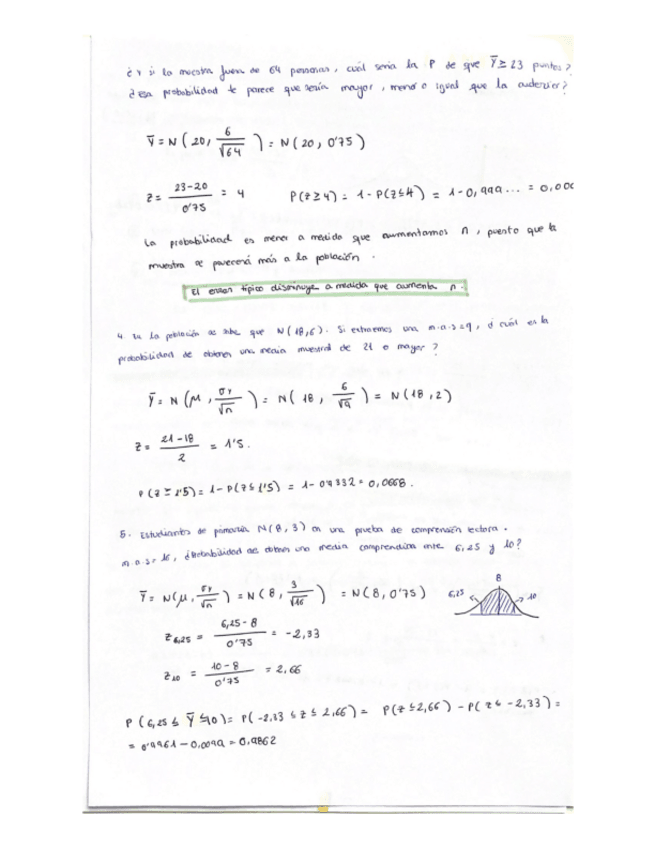 ¿Y si la muestra fuera de 64 personas, cuál sería la P de que Ȳ ≥ 23 puntos?
¿Esa probabilidad te parece que sería mayor, menor o igual que la anterior?
Ȳ = N(20, 6/√64) = N(20, 0'75)
z = (23-20)/0'75 = 4    P(z ≥ 4) = 1 - P(z ≤ 4) = 1 - 0,999... = 0,000
La probabilidad es menor a medida que aumentamos n, puesto que la
muestra se parecerá más a la población.
El error típico disminuye a medida que aumenta n.
4. En la población se sabe que N(18,6). Si extraemos una m.a.s = 9, ¿cuál es la
probabilidad de obtener una media muestral de 21 o mayor?
Ȳ = N(μ, σY/√n) = N(18, 6/√9) = N(18, 2)
z = (21-18)/2 = 1'5.
P(z ≥ 1'5) = 1 - P(z ≤ 1'5) = 1 - 0'9332 = 0,0668.
5. Estudiantes de primaria N(8, 3) en una prueba de comprensión lectora.
m.a.s = 16, ¿Probabilidad de obtener una media comprendida entre 6,25 y 10?
Ȳ = N(μ, σY/√n) = N(8, 3/√16) = N(8, 0'75)
8
6,25
10
z6,25 = (6,25-8)/0'75 = -2,33
z10 = (10-8)/0'75 = 2,66
P(6,25 ≤ Ȳ ≤ 10) = P(-2,33 ≤ z ≤ 2,66) = P(z ≤ 2,66) - P(z ≤ -2,33) =
= 0'9961 - 0,0099 = 0,9862